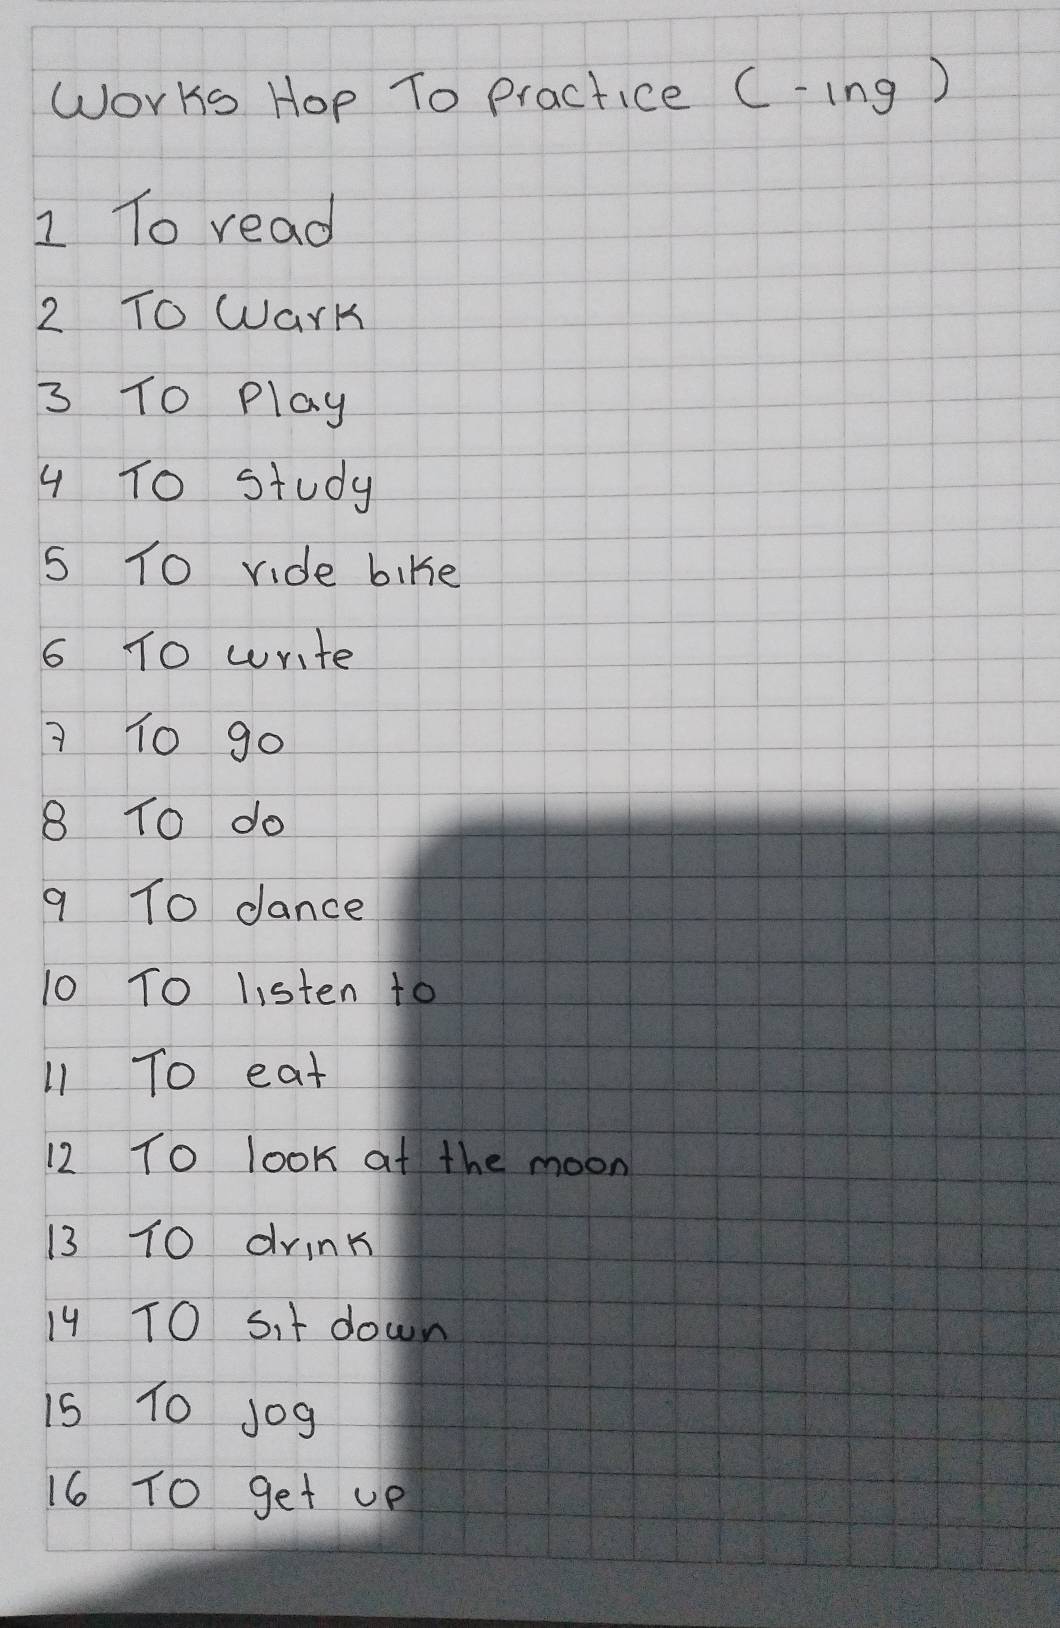 Works Hop To practice (-ing)
1 To read
2 To Wark
3 To Play
4 To study
5 To ride bike
6 To write
7 To go
8 To do
9 To dance
10 To listen to
11 To eat
12 To look at the moon
13 To drink
14 To sit down
15 To jog
16 To get up